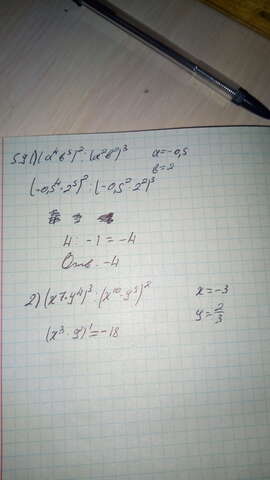 59 1) (a⁴b⁵)² : (a²b²)³ a = -0,5
b = 2
(-0,5⁴ · 2⁵)² : (-0,5² · 2²)³
4 : -1 = -4
Отв. -4
2) (x7 · y⁴)³ : (x¹⁰ · y⁵)² x = -3
(x³ · y²)¹ = -18 y = 2/3